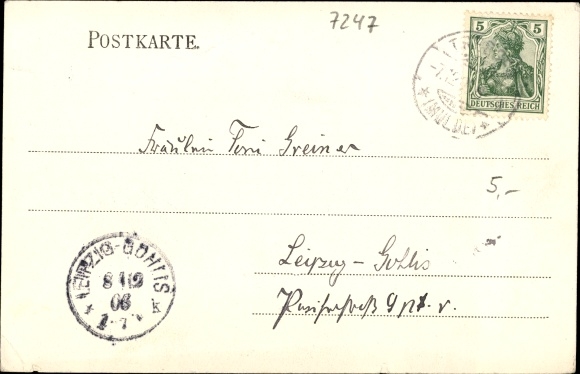 7247
POSTKARTE.
5 5
DEUTSCHES REICH
(MULDE)
Fräulein Toni Greiner
5,-
Leipzig-Gohlis
9 pt. r.
LEIPZIG-GOHLIS
8 12
06
K